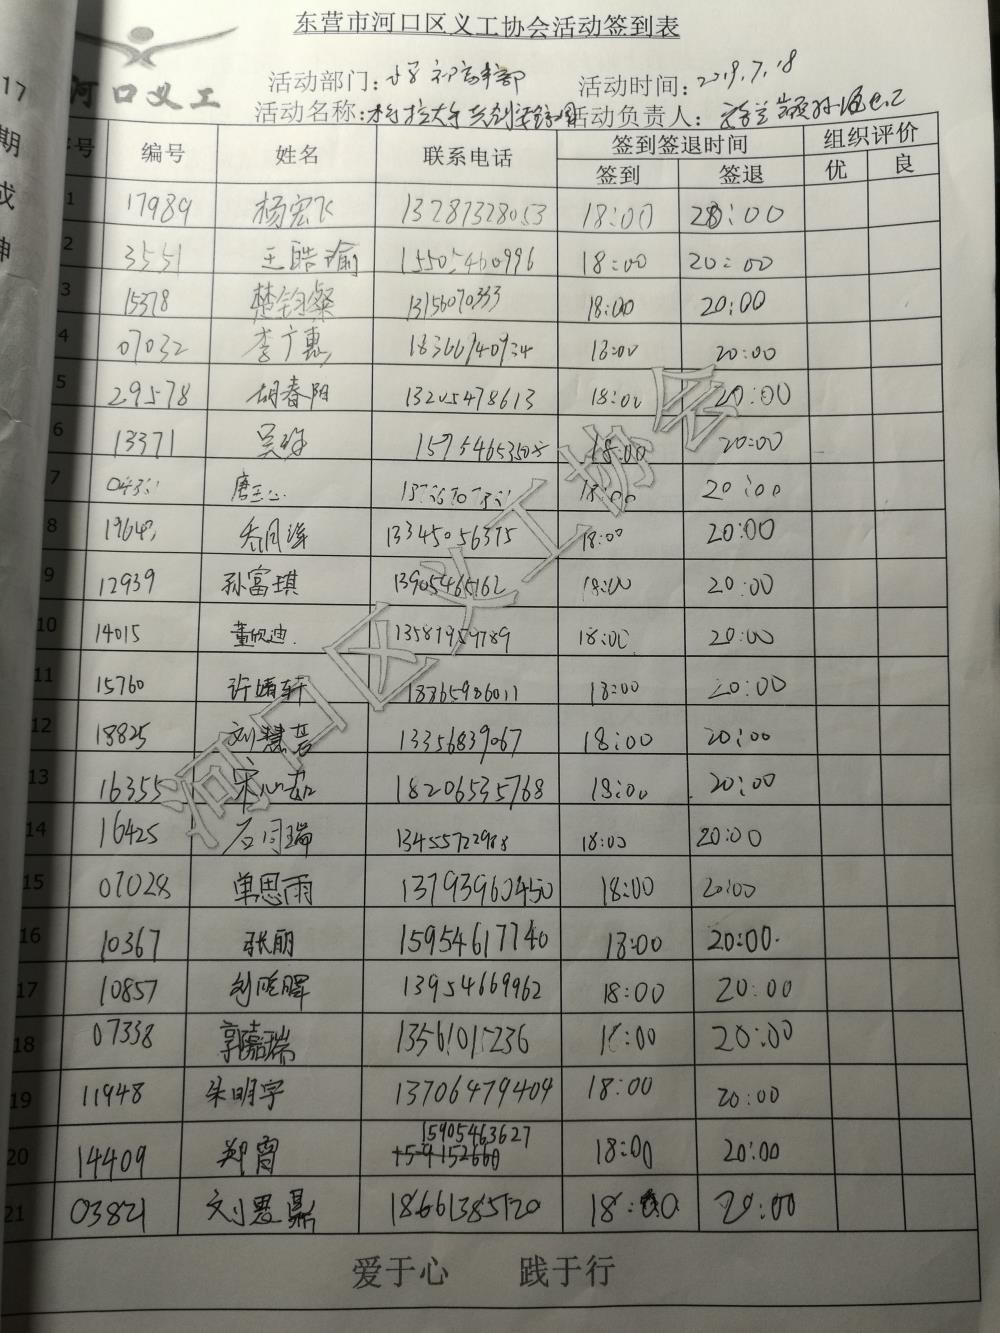 东营市河口区义工协会活动签到表
17
期
成
河口义工
活动部门: 活动时间: 2019.7.18
活动名称: 活动负责人:
序号 编号 姓名 联系电话 签到签退时间 组织评价
签到 签退 优 良
1 17989 杨宏飞 13781328053 18:00 20:00
2 3551 王皓瑜 15505460996 18:00 20:00
3 15378 楚钧粲 13156070333 18:00 20:00
4 07032 李广惠 18:00 20:00
5 29578 胡春阳 13205478613 18:00 20:00
6 13371 18:00 20:00
7 18:00 20:00
8 13345056375 18:00 20:00
9 12939 孙富琪 13905465162 18:00 20:00
10 14015 董欣迪 13581959789 18:00 20:00
11 15760 许婧轩 18365986011 18:00 20:00
12 18825 刘慧若 13356839067 18:00 20:00
13 16355 宋心茹 18206535768 18:00 20:00
14 16425 石同瑞 13455722988 18:00 20:00
15 07028 单思雨 13793960450 18:00 20:00
16 10367 张丽 15954617740 18:00 20:00
17 10857 13954669962 18:00 20:00
18 07338 郭嘉瑞 13561015236 18:00 20:00
19 11948 朱明宇 13706479409 18:00 20:00
20 14409 郑霄 15905463627 18:00 20:00
21 03821 刘思鼎 18661385120 18:00 20:00
河口区义工协会
爱于心 践于行